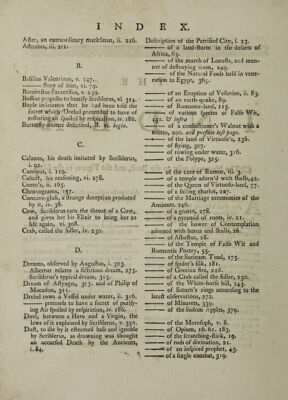 INDEX.
After, an extraordinary marksman, ii. 226.
iii. 211.
B.
Basilius Valentinus, v. 747.
—— Story of him, vi. 79.
Bombastus Paracelsus, v. 239.
Bossuet proposes to beatify Scriblerus, vi. 314.
Boyle insinuates that he had been told the
secret which Drebel pretended to have of
restoring air spoiled by respiration, iv. 186.
Butterfly-hunter described, B. vi. begin.
C.
Calanus, his death imitated by Scriblerus,
i. 92.
Canopus, i. 119.
Cathcart, his reasoning, vi. 278.
Conto's, ii. 165.
Chronograms, 157.
Concave-glass, a strange deception produced
by it, iv. 38.
Cow, Scriblerus cuts the throat of a Cow,
and gives her his Elixir to bring her to
life again, vi. 308.
Crab, called the fidler, iv. 230.
D.
Dreams, observed by Augustus, i. 303.
Albertus relates a fictitious dream, 275.
Scriblerus's typical dream, 315.
Dream of Astyages, 317. and of Philip of
Macedon, 311.
Drebel rows a Vessel under water, ii. 316.
—— pretends to have a secret of purify-
ing Air spoiled by respiration, iv. 186.
Duel, between a Hero and a Virgin, the
laws of it explained by Scriblerus, v. 350.
Dust, to die by it esteemed base and ignoble
by Scriblerus, as drowning was thought
an accursed Death by the Ancients,
i. 84.
Description of the Petrified City, i. 23.
—— of a land-storm in the desarts of
Africa, 63.
—— of the march of Locusts, and man-
ner of destroying them, 249.
—— of the Natural Fools held in vene-
ration in Egypt, 365.
—— of an Eruption of Vesuvius, ii. 83.
—— of an earth-quake, 89.
—— of Romance-land, 115.
—— of various species of False Wit,
151. & infra
—— of a confectioner's Walnut with a
motto, 200. and prefixt left page.
—— of the land of Virtuoso's, 236.
—— of flying, 307.
—— of rowing under water, 316.
—— of the Polype, 325.
—— of the cave of Rumor, iii. 3.
—— of a temple adorn'd with shells, 42.
—— of the Queen of Virtuoso-land, 77.
—— of a sailing chariot, 227.
—— of the Marriage ceremonies of the
Ancients. 246.
—— of a grotto, 278.
—— of a pyramid of roots, iv. 21.
—— of the bower of Contemplation
adorned with bones and skulls, 26.
—— of Asbestus, 28.
—— of the Temple of False Wit and
Romantic Poetry, 55.
—— of the Surinam Toad, 175.
—— of spider's silk, 181.
—— of Grecian fire, 216.
—— of a Crab called the fidler, 230.
—— of the White-horse hill, 243.
—— of Saturn's rings according to the
latest observations, 272.
—— of Minarets, 339.
—— of the Sodom Apples, 379.
—— of the Morosoph, v. 8.
—— of Opium, 16. 61. 183.
—— of the scratching-stick, 19.
—— of rods of divination, 21.
—— of an inspired prophet, 43.
—— of a single combat, 319.